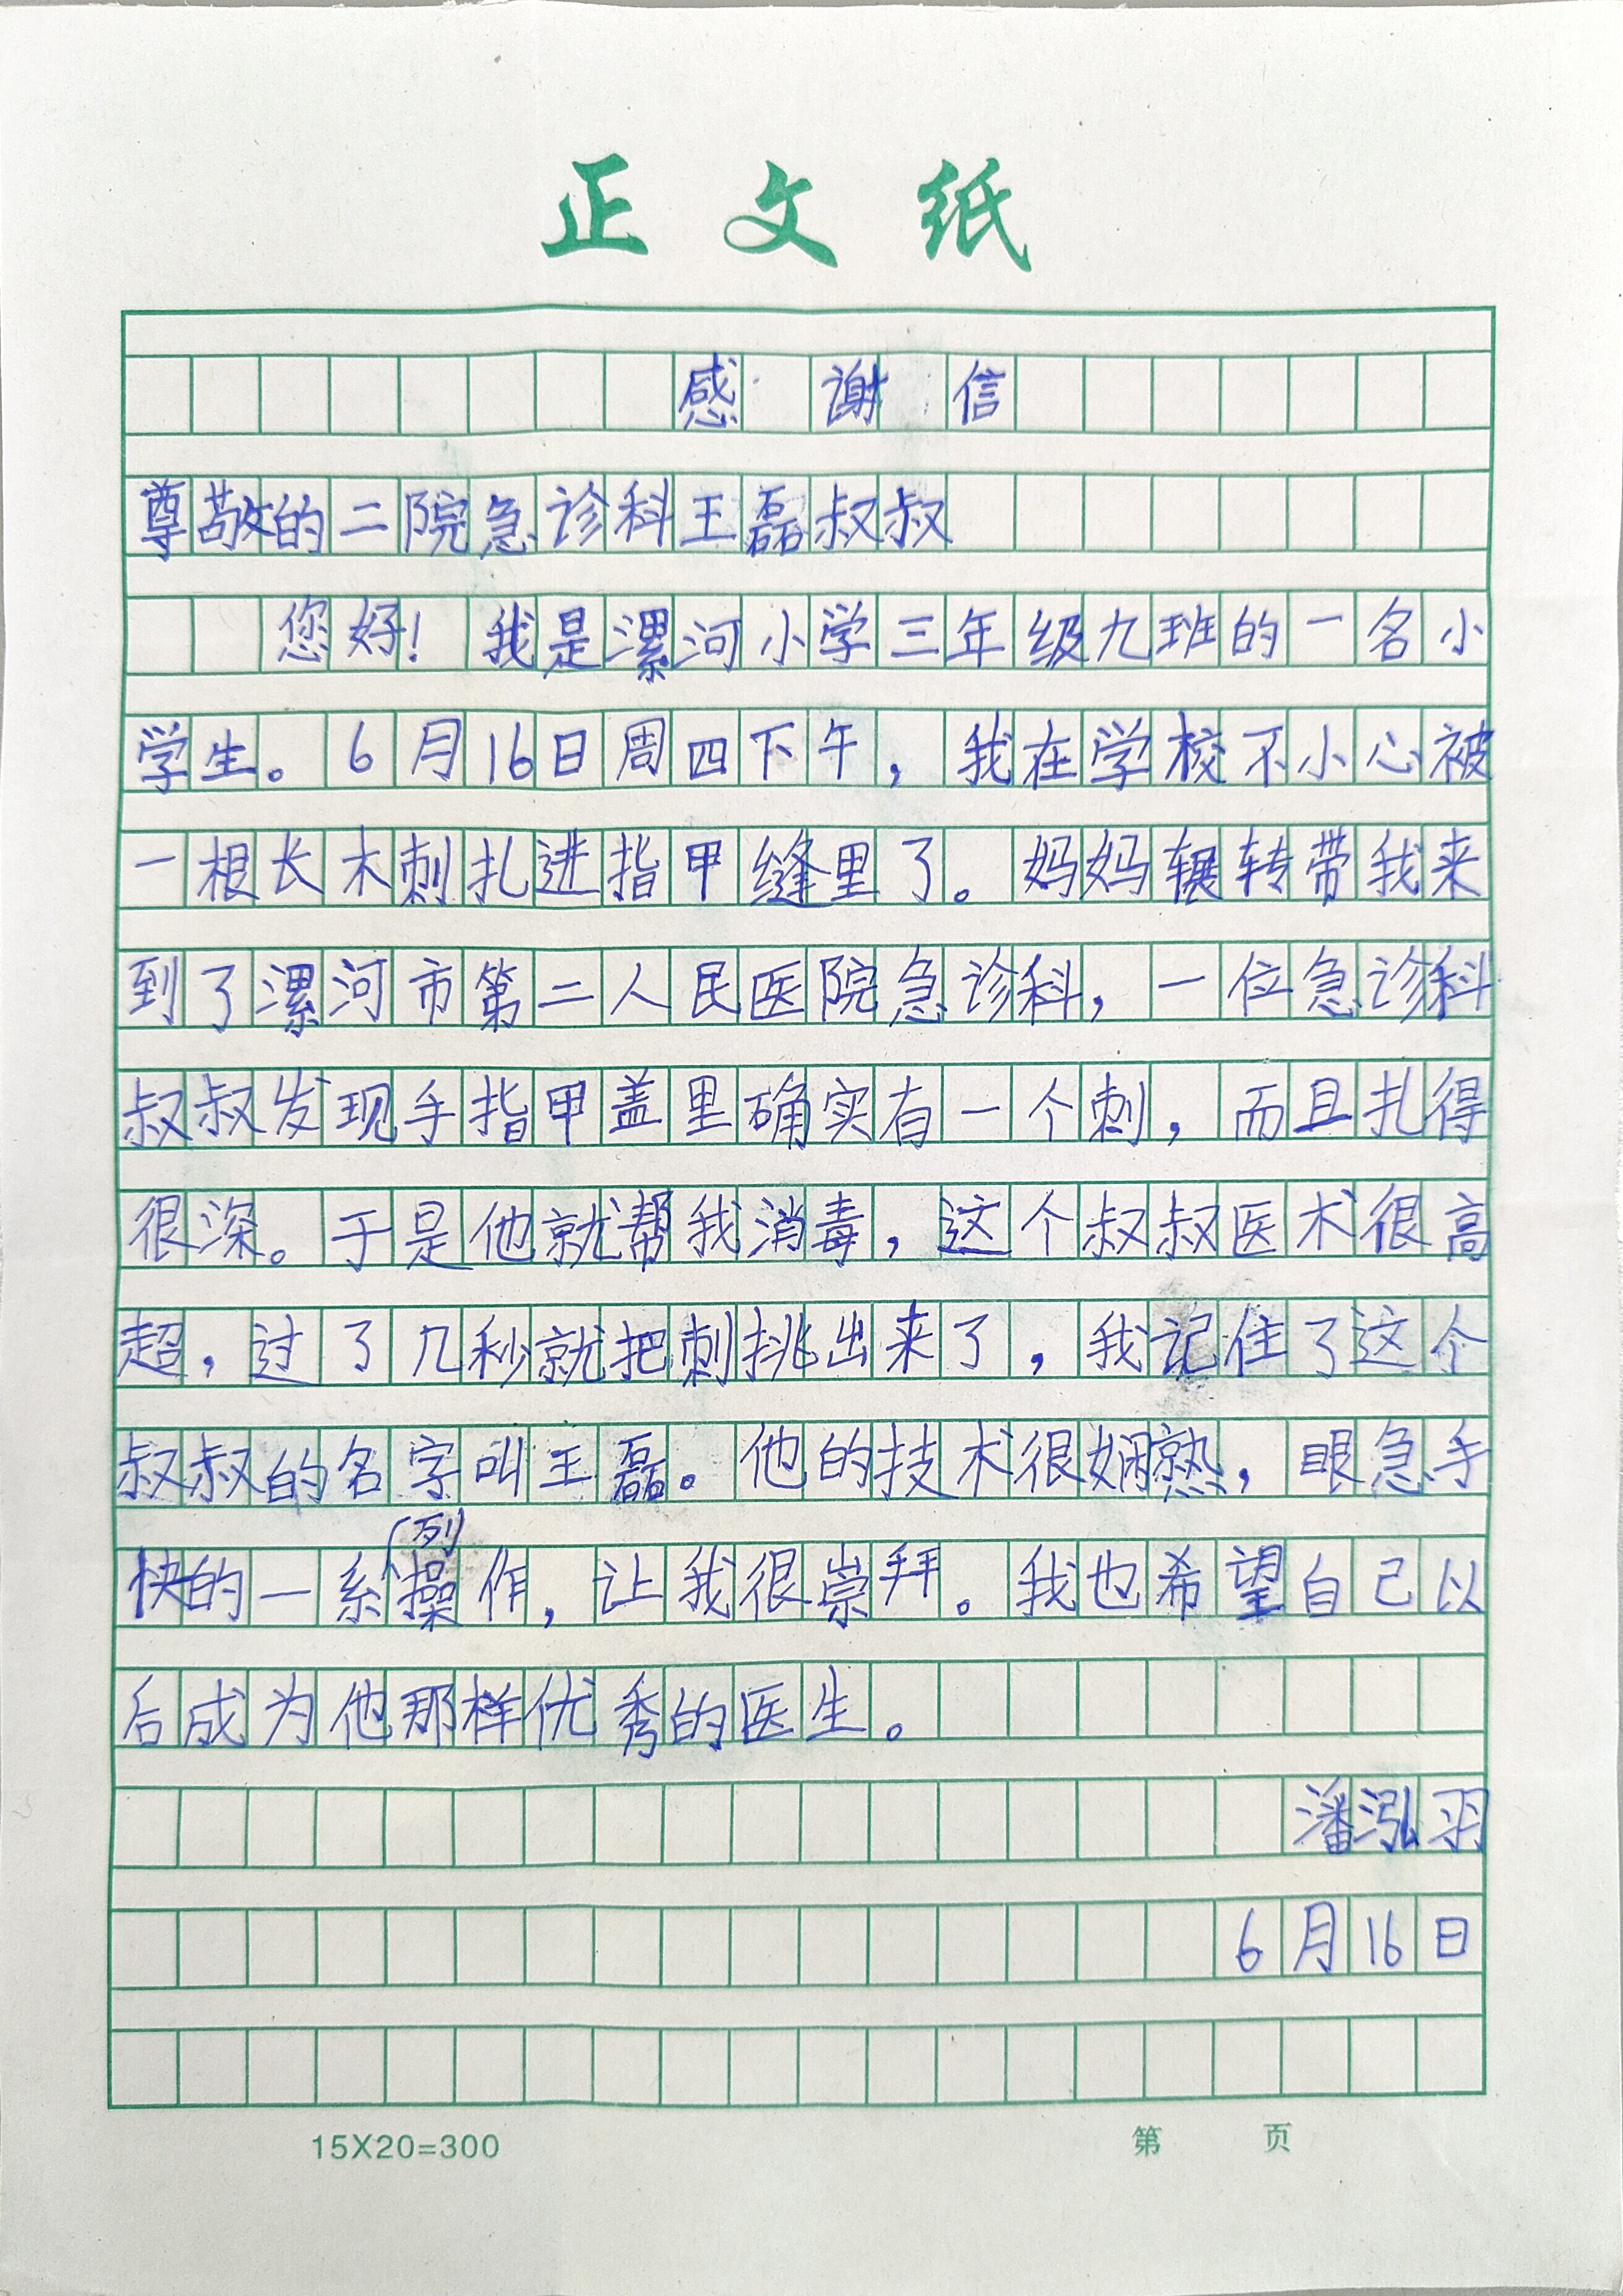 正文纸
感谢信
尊敬的二院急诊科王磊叔叔
您好！我是漯河小学三年级九班的一名小
学生。6月16日周四下午，我在学校不小心被
一根长木刺扎进指甲缝里了。妈妈辗转带我来
到了漯河市第二人民医院急诊科，一位急诊科
叔叔发现手指甲盖里确实有一个刺，而且扎得
很深。于是他就帮我消毒，这个叔叔医术很高
超，过了几秒就把刺挑出来了，我记住了这个
叔叔的名字叫王磊。他的技术很娴熟，眼急手
快的一系列操作，让我很崇拜。我也希望自己以
后成为他那样优秀的医生。
潘泓羽
6月16日
15X20=300
第 页